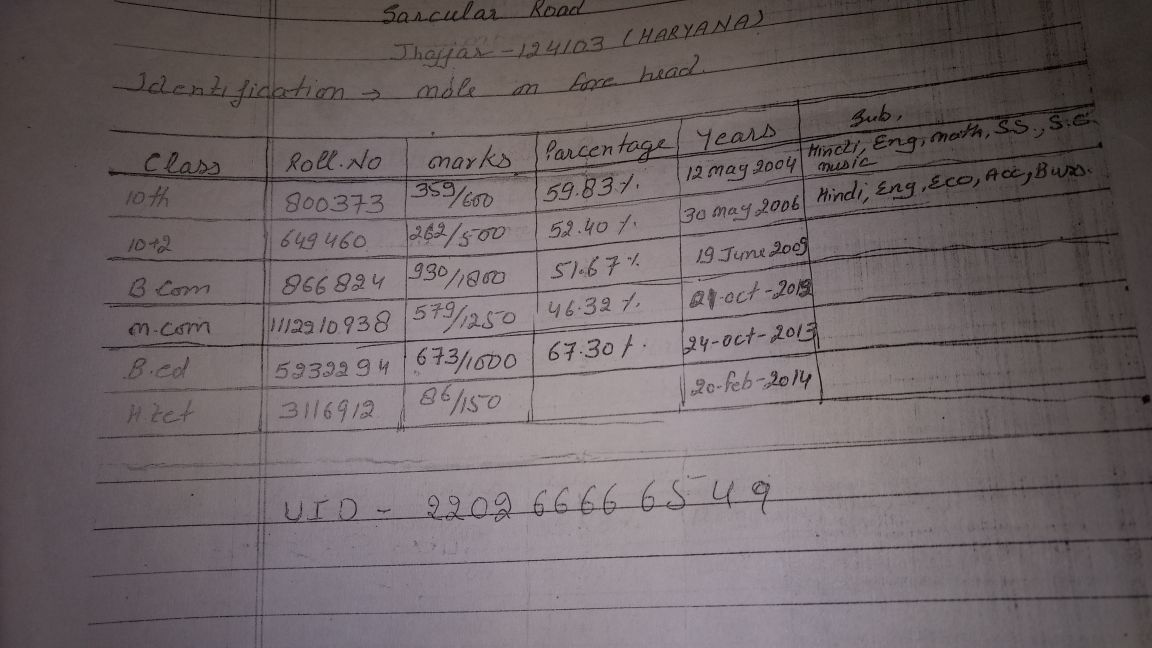 Sarcular Road
Jhajjar - 124103 (HARYANA)
Identification → mole on fore head.
Class Roll.No marks Parcentage Years Sub.
10th 800373 359/600 59.83% 12 may 2004 Hindi, Eng, math, SS., S.C. music
10+2 649460 262/500 52.40% 30 may 2006 Hindi, Eng, Eco, Acc, Buss.
B.com 866824 930/1800 51.67% 19 June 2009
m.com 1112210938 579/1250 46.32% 21-oct-2012
B.ed 5232294 673/1000 67.30% 24-oct-2013
H.tet 3116912 86/150 20-feb-2014
UID - 220266666549